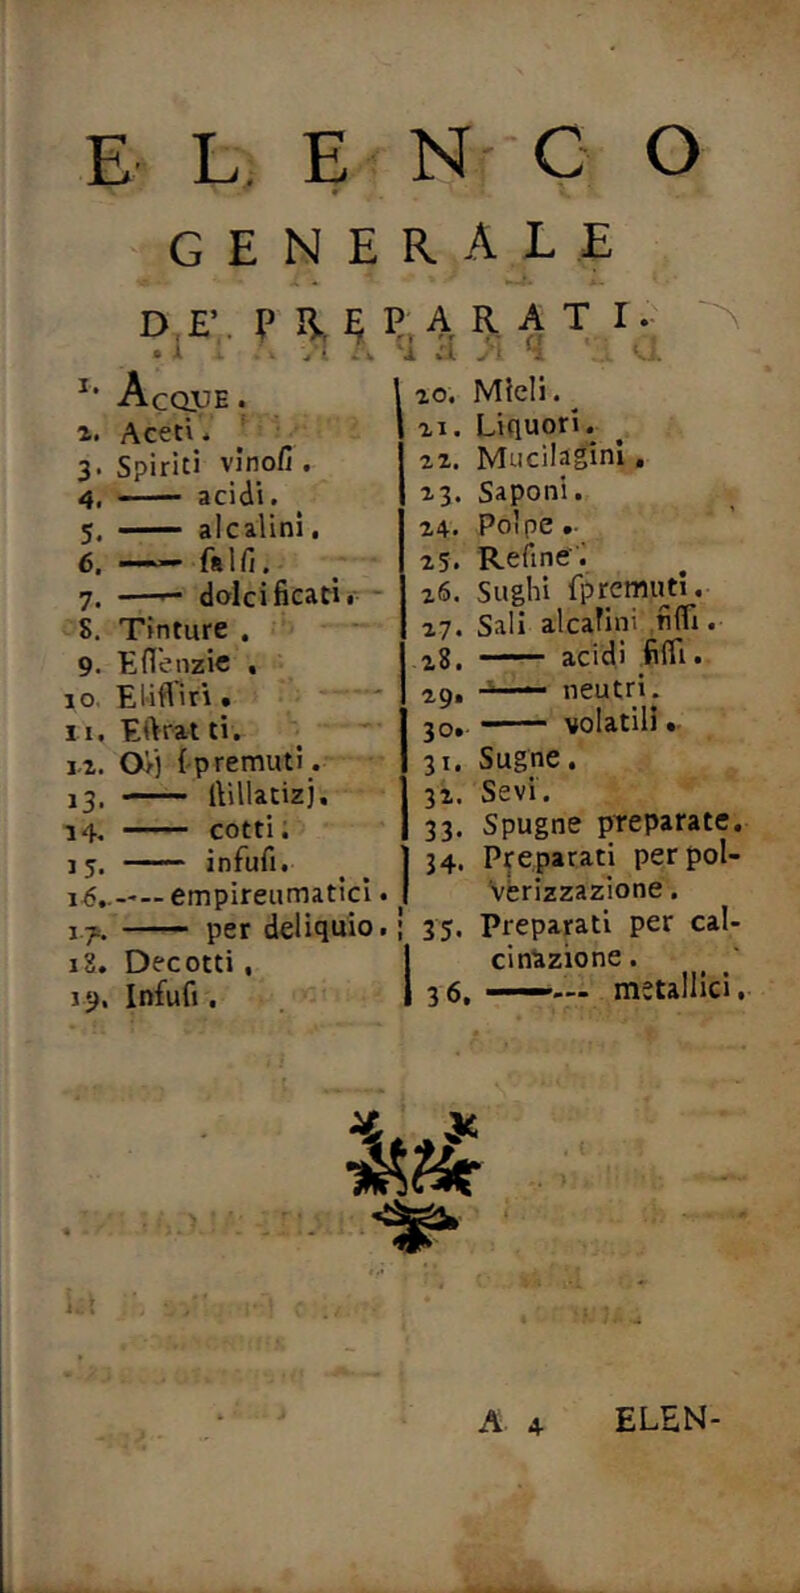 ELENCO
GENERALE
DE' PREPARATI.
1. ACQUE.
2. Aceti.
3. Spiriti vinoſi.
4. —— acidi.
5. —— alcalini.
6. —— ſalſi.
7. —— dolcificati.
8. Tinture.
9. Eſſenzie.
10. Eliſſiri.
11. Eſtratti.
12. Olj ſpremuti.
13. —— ſtillatizj.
14. —— cotti.
15. —— infuſi.
16. —— empireumatici.
17. —— per deliquio.
18. Decotti,
19. Infuſi.
20. Mieli.
21. Liquori.
22. Mucilagini.
23. Saponi.
24. Polpe.
25. Reſine.
26. Sughi ſpremuti.
27. Sali alcalini fiſſi.
28. —— acidi fiſſi.
29. —— neutri.
30. —— volatili.
31. Sugne.
32. Sevi.
33. Spugne preparate.
34. Preparati per pol-
verizzazione.
35. Preparati per cal-
cinazione.
36. —— metallici.
A 4 ELEN-